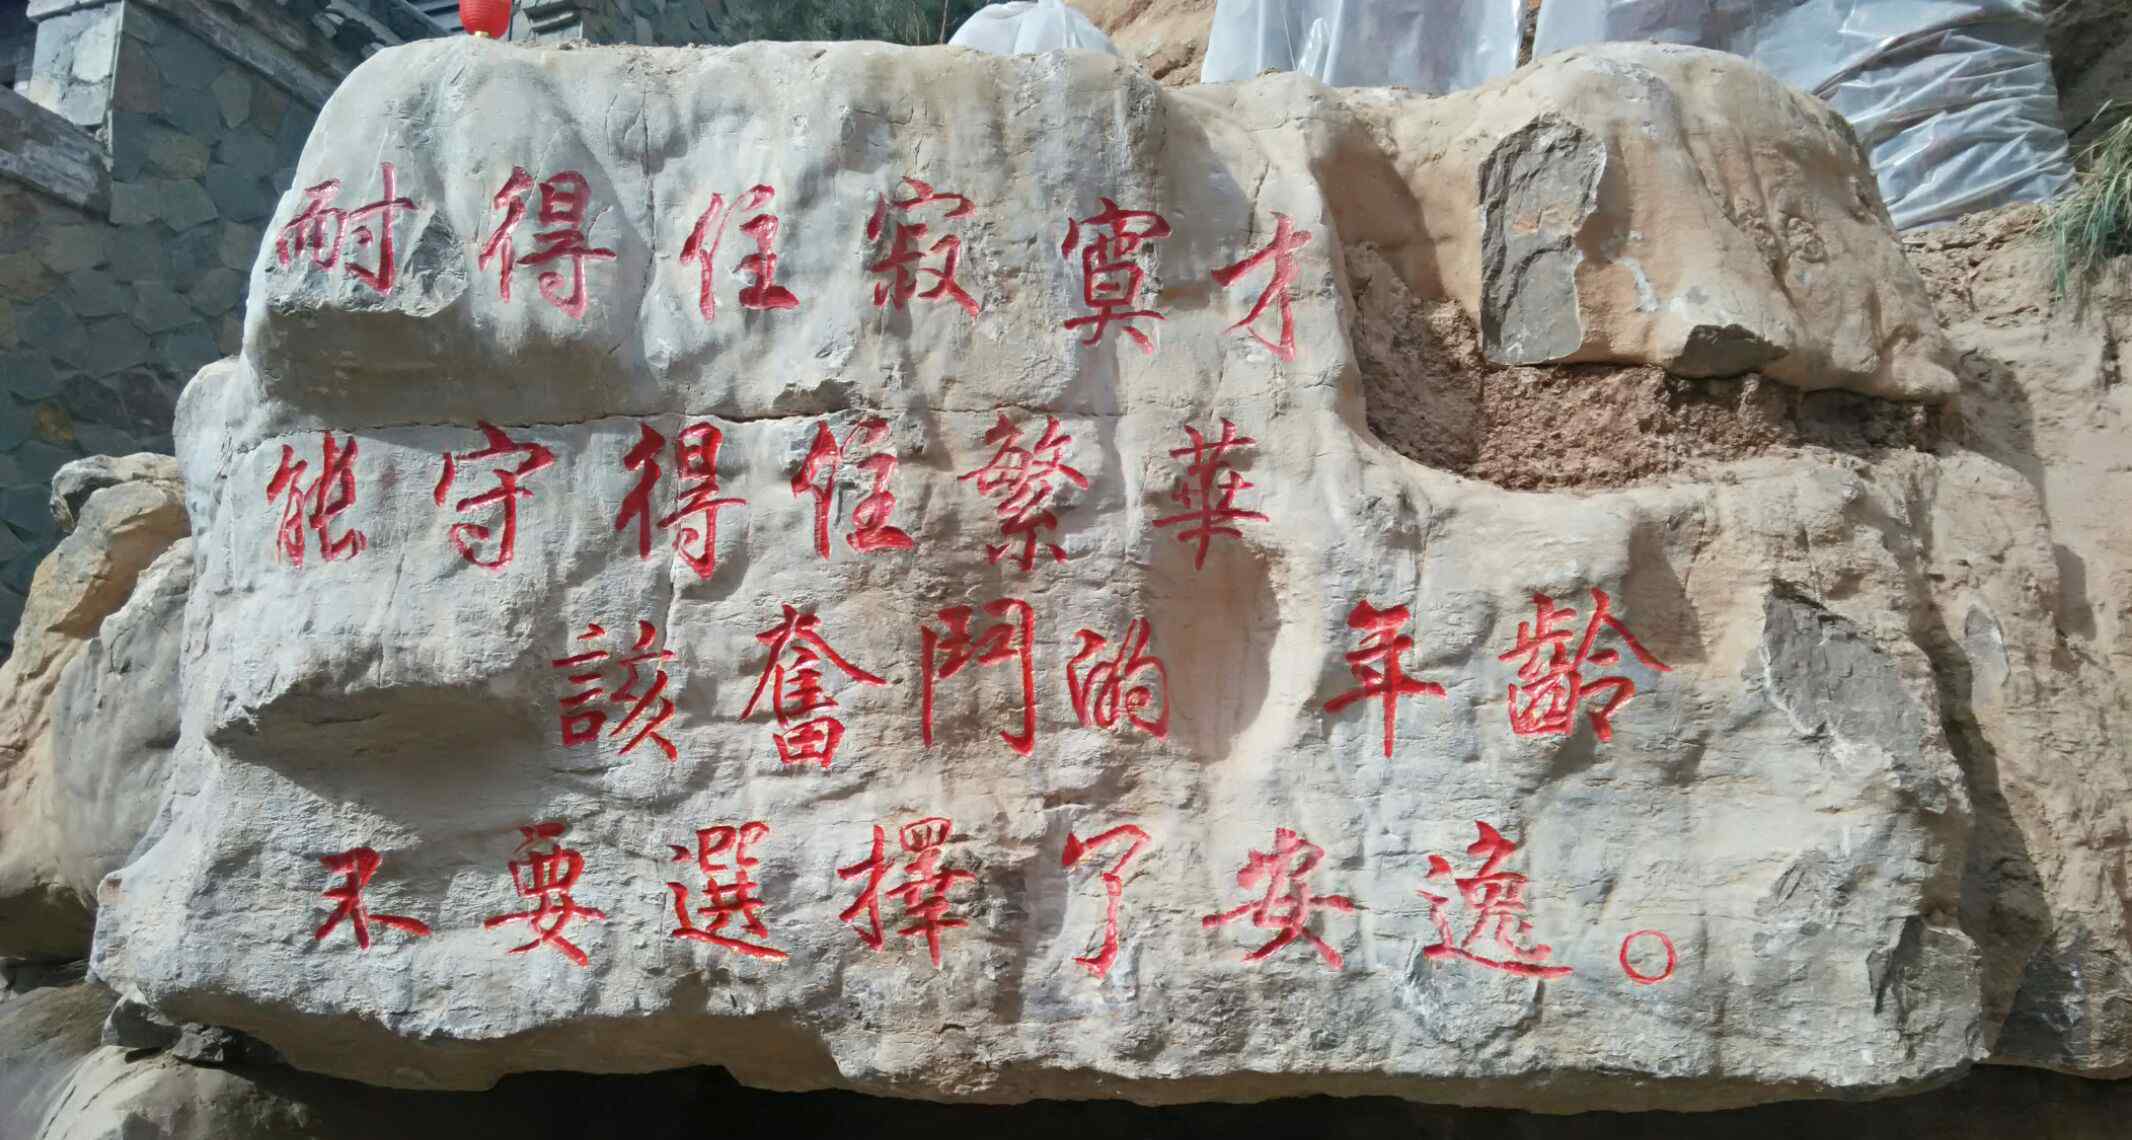 耐得住寂寞才
能守得住繁華
該奮鬥的年齡
不要選擇了安逸。